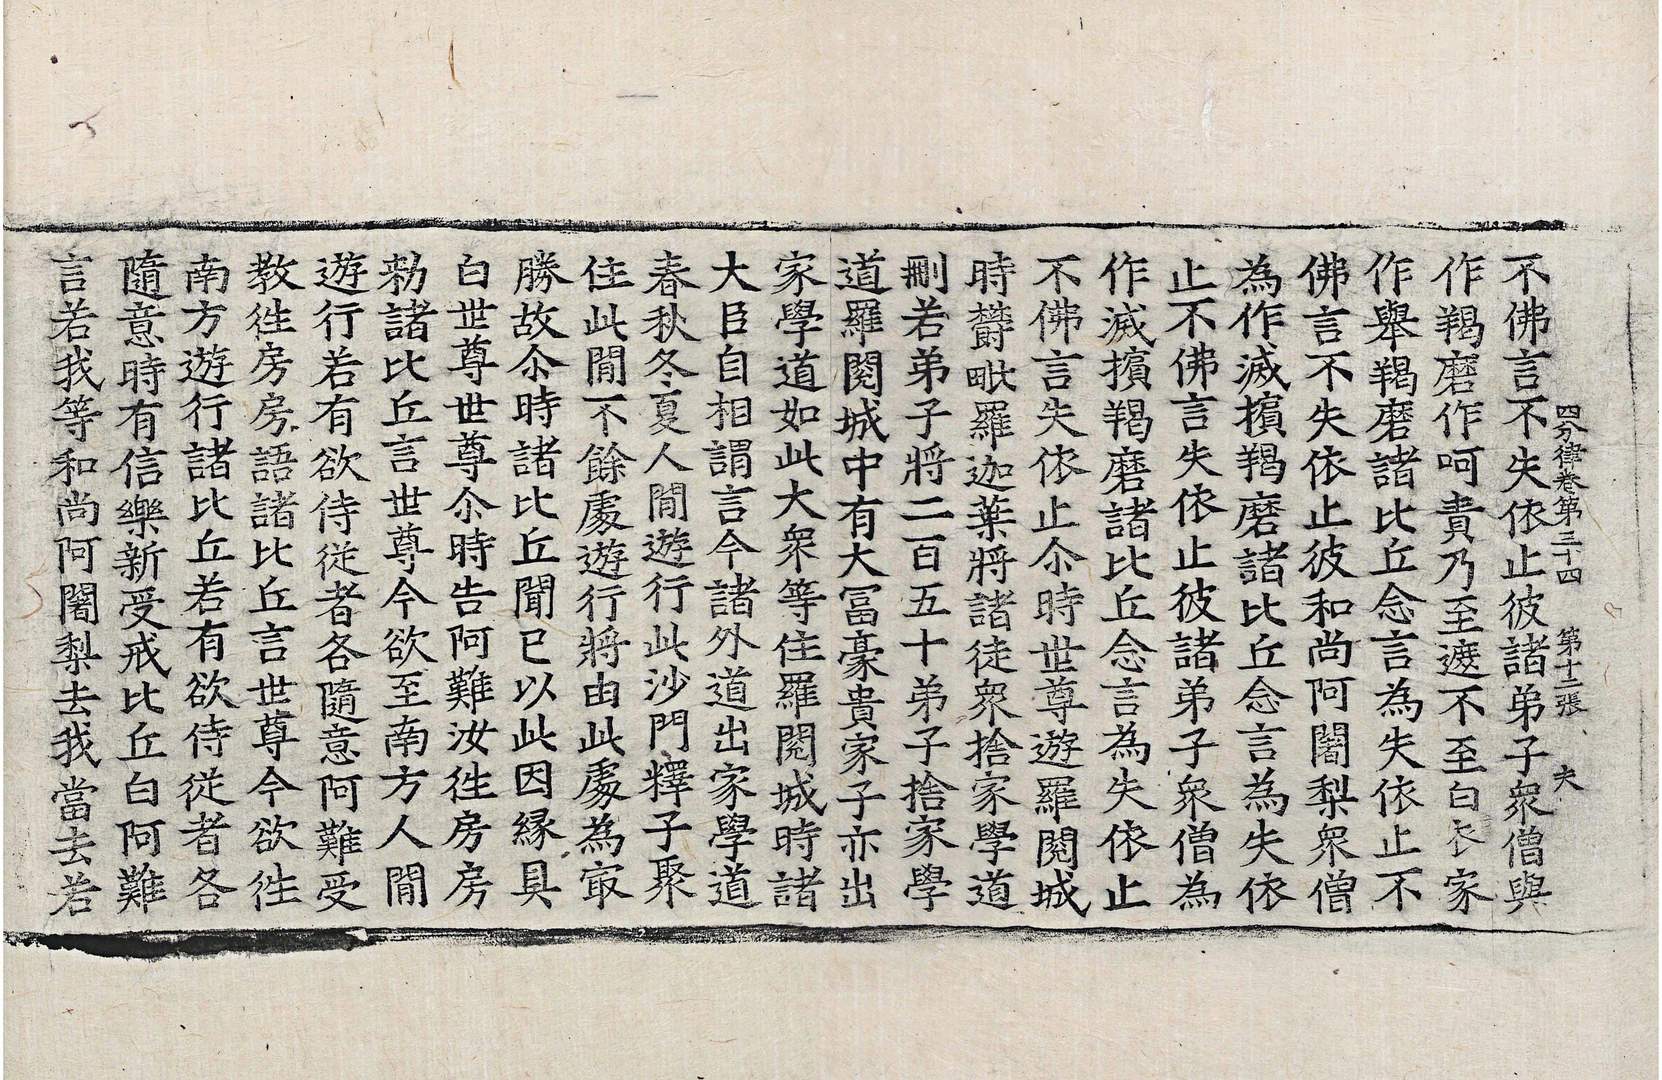 四分律卷第三十四　第十二張　夫
不佛言不失依止彼諸弟子衆僧與
作羯磨作呵責乃至遮不至白衣家
作舉羯磨諸比丘念言為失依止不
佛言不失依止彼和尚阿闍梨衆僧
為作滅擯羯磨諸比丘念言為失依
止不佛言失依止彼諸弟子衆僧為
作滅擯羯磨諸比丘念言為失依止
不佛言失依止尒時世尊遊羅閱城
時欝毗羅迦葉將諸徒衆捨家學道
刪若弟子將二百五十弟子捨家學
道羅閱城中有大冨豪貴家子亦出
家學道如此大衆等住羅閱城時諸
大臣自相謂言今諸外道出家學道
春秋冬夏人閒遊行此沙門釋子聚
住此閒不餘處遊行將由此處為㝡
勝故尒時諸比丘聞已以此因縁具
白世尊世尊尒時告阿難汝徃房房
勑諸比丘言世尊今欲至南方人閒
遊行若有欲侍從者各隨意阿難受
教徃房房語諸比丘言世尊今欲徃
南方遊行諸比丘若有欲侍從者各
隨意時有信樂新受戒比丘白阿難
言若我等和尚阿闍梨去我當去若